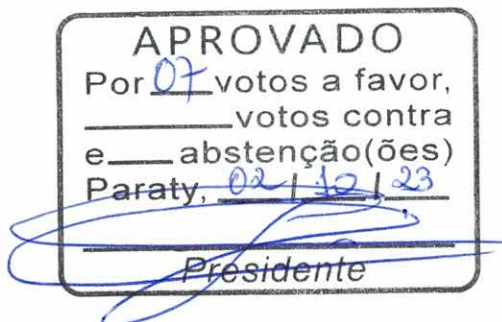 APROVADO
Por 07 votos a favor,
______votos contra
e___abstenção(ões)
Paraty, 02 / 10 / 23
Presidente